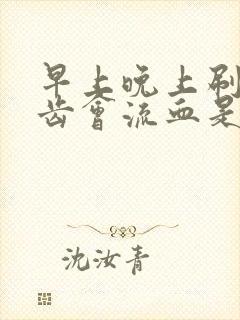 早上晚上刷
齿會流血是
沈汝青